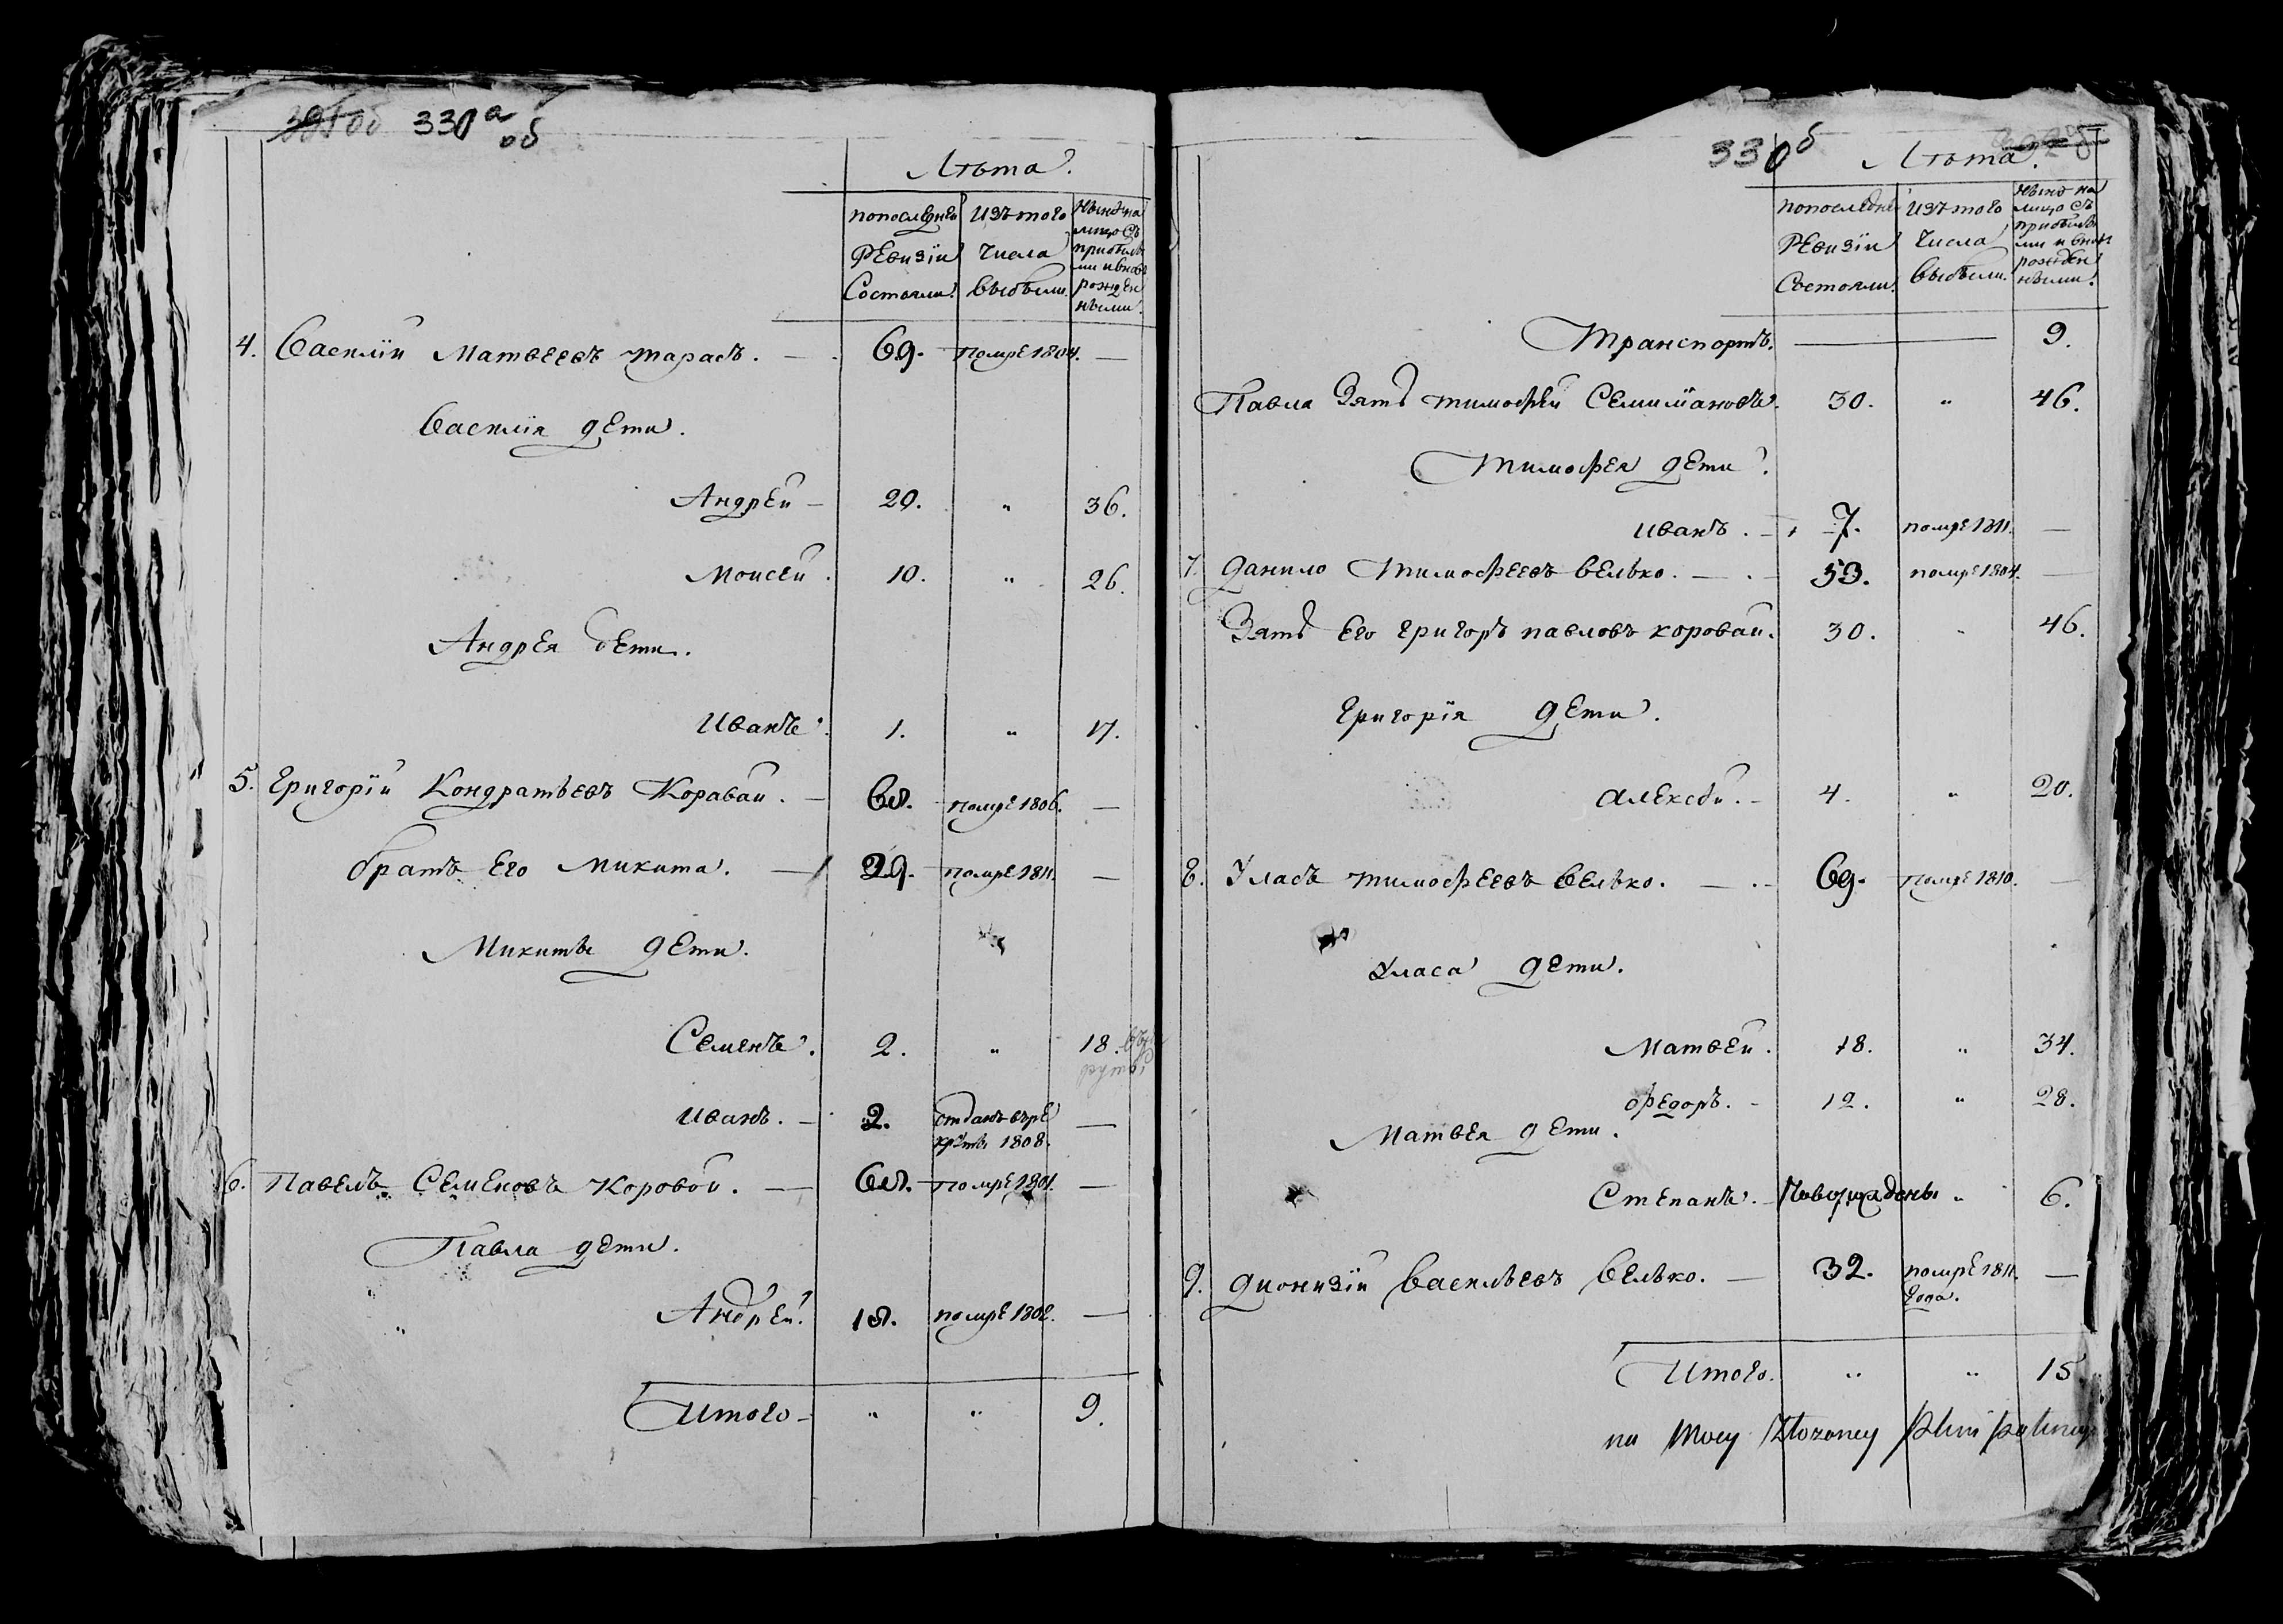 330а об
Лѣта.
по последней Ревизіи Состояли. Изъ того числа выбыли. Нынѣ на лицо съ прибылыми и вновь рожденными.
4. Василій Матвеевъ тарасъ. — 69. помре 1804. —
Василія дети.
Андрей — 20. „ 36.
Моисей. 10. „ 26.
Андрея дети.
Иванъ. 1. „ 17.
5. Григорій Кондратьевъ Коравай. — помре 1806. —
братъ Его Микита. — 29. помре 1811. —
Микиты дети.
Семенъ. 2. „ 18.
Иванъ. — 2. отданъ въ рекруты 1808. —
6. Павелъ Семеновъ Коровой. — помре 1801. —
Павла дети.
Андрей. помре 1802. —
Итого — „ „ 9.
330б
Лѣта.
по последней Ревизіи Состояли. Изъ того Числа выбыли. Нынѣ на лицо съ прибылыми и вновь рожденными.
Транспортъ. — 9.
Павла Зять тимофей Семимановъ. 30. „ 46.
Тимофея дети.
Иванъ. — 7. помре 1811. —
7. Данило Тимофеевъ велько. — 53. помре 1804. —
Зять Его григоръ павловъ коровай. 30. „ 46.
Григорія дети.
Алексѣй. — 4. „ 20.
8. Уласъ тимофеевъ велько. — 69. помре 1810. —
Уласа дети.
Матвей. 18. „ 34.
Федоръ. — 12. „ 28.
Матвея дети.
Степанъ. — Новорожденъ „ 6.
9. Дионизій Васильевъ велько. — 32. помре 1811. года. —
Итого. „ „ 15